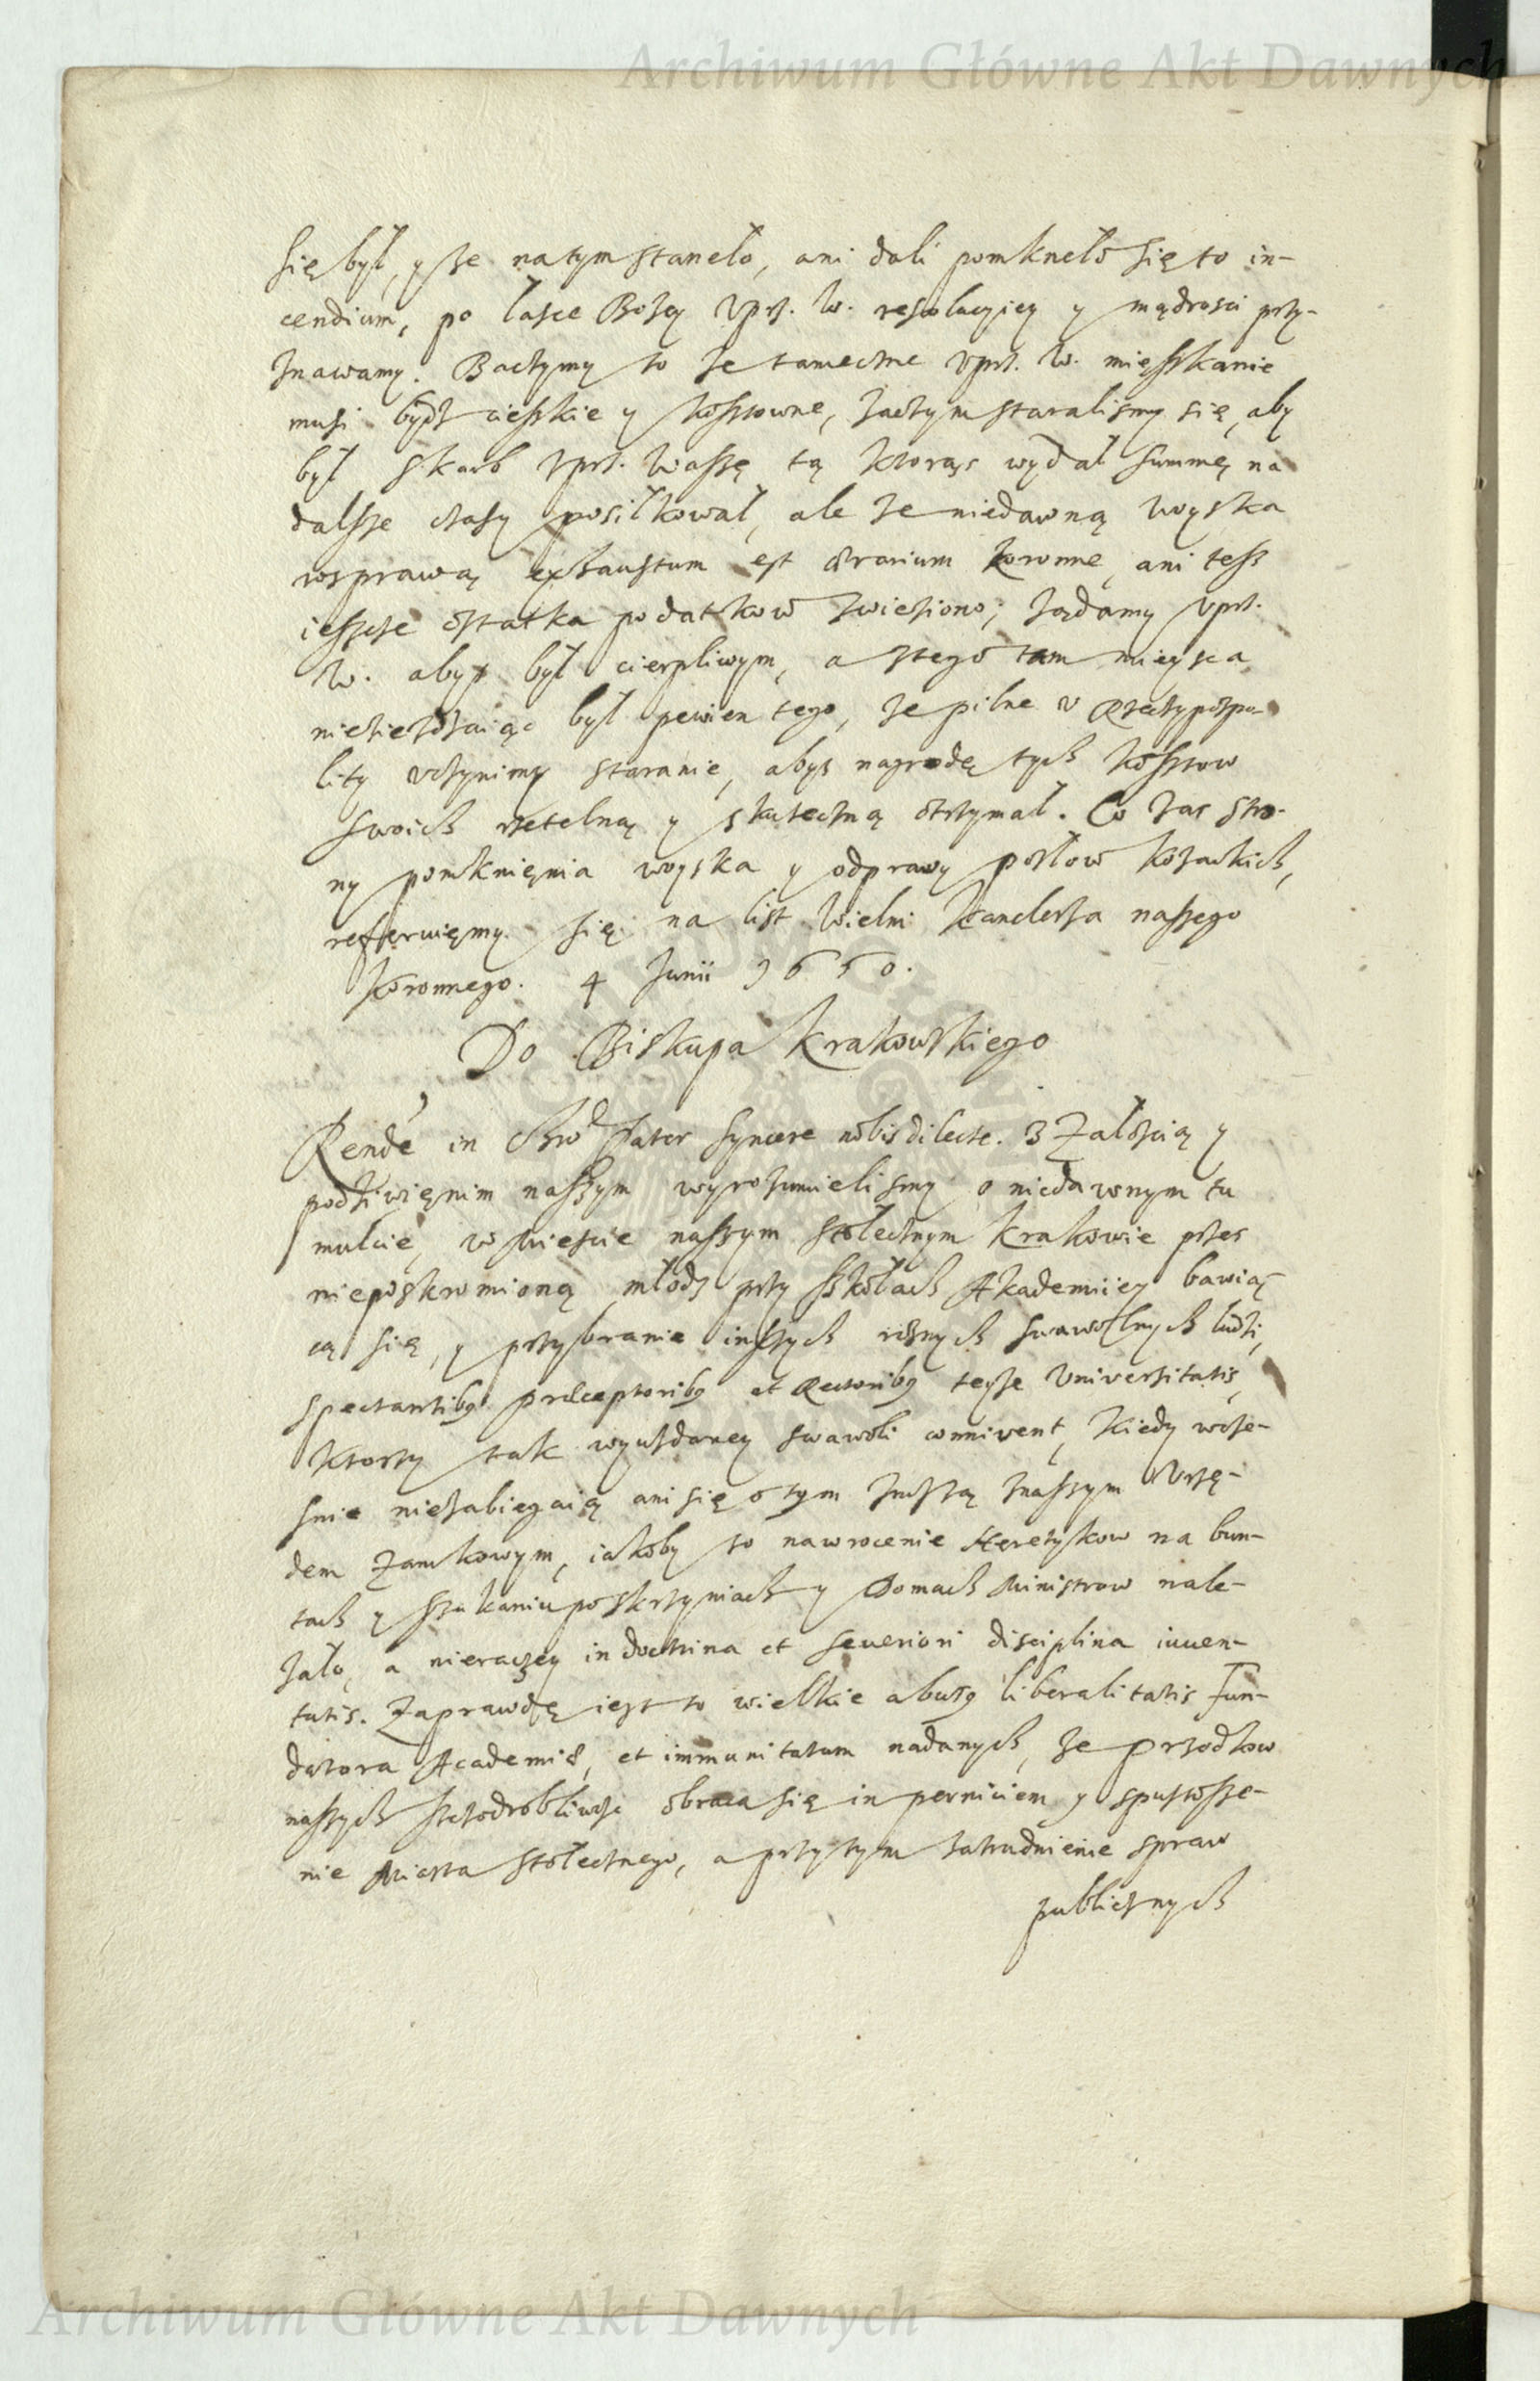 Archiwum Główne Akt Dawnych
się był, y że na tym staneło, ani dali pomkneło się to in-
cendium, po łasce Bożey Uprz. W. resolucyiey y mądrosci przy-
znawamy. Baczymy to że tameczne Uprz. W. mięszkanie
musi bydz cieszkie y kosztowne, zaczym staralismy się, aby
był skarb Uprz. Waszę tą ktorąs wydał summę na
dalsze czasy posiłkował, ale że niedawną woyska
rosprawą exhaustum est ærarium koronne, ani tesz
ieszcze ostatka podatkow zwieziono; żądamy Uprz.
W. abyś był cierpliwym, a z tego tam mieysca
niezieżdzaiąc był pewien tego, że pilne u Rzeczypospo-
lity uczynimy staranie, abys nagrodę tych kosztow
swoich rzetelną y skuteczną otrzymał. Co zas stro-
ny pomknięnia woyska y odprawy posłow kozackich,
referuięmy się na list Wielm Kanclerza naszego
Koronnego. 4 Junii 1650.
Do Biskupa Krakowskiego
Rende in Chro Pater syncere nobis dilecte. Z żałoscią y
podziwięnim naszym wyrozumielismy o niedawnym tu
mulcie, w Miescie naszym stołecznym Krakowie przes
nieposkromioną młodz przy szkołach Akademiiey bawią
cą się, y przybranie inszych roznych swawolnych ludzi,
spectantibq præceptoribq et Rectoribq teyże Universitatis,
ktorzy tak wyuzdaney swawoli connivent, kiedy wcze-
snie niezabiegaią ani się o tym znoszą z naszym Urzę-
dem Zamkowym, iakoby to nawrocenie Heretykow na bun-
tach y szukaniu po skrzyniach y Domach Ministrow nale-
żało, a nieraczey in doctrina et severiori disciplina iuven-
tutis. Zaprawdę iest to wielkie abusq liberalitatis Fun-
datora Academiæ, et immunitatum nadanych, że przodkow
naszych szczodrobliwosc obraca się in perniciem y spustosze-
nie Miasta stołecznego, a przytym zatrudnienie spraw
publicznych
Archiwum Główne Akt Dawnych